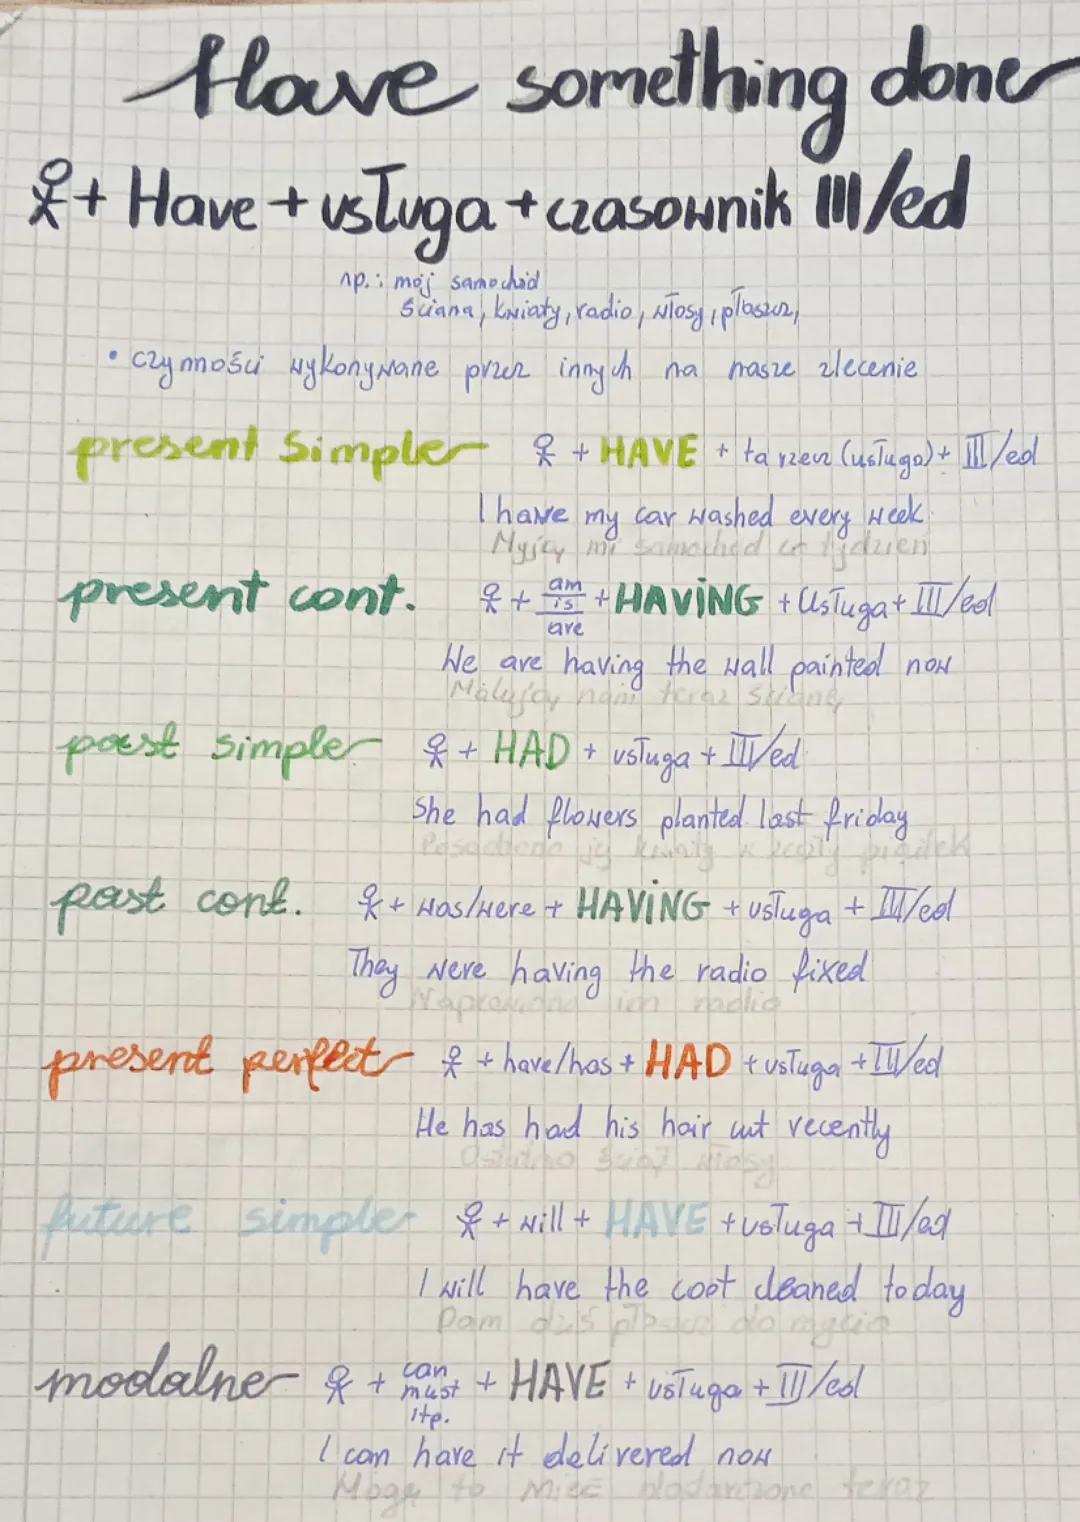 Have something done
+ Have + usługa + czasownik III/ed
np.: mój samochód
ściana, kwiaty, radio, włosy, płaszcz,
• czynności wykonywane przez innych na nasze zlecenie
present simple + HAVE + ta rzecz (usługa) + III/ed
I have my car washed every week
Myją mi samochód co tydzień
present cont. + am is are + HAVING + usługa + III/ed
We are having the wall painted now
Malują nam teraz ścianę
past simple + HAD + usługa + III/ed
She had flowers planted last friday
Posadzono jej kwiaty w zeszły piątek
past cont. + was/were + HAVING + usługa + III/ed
They were having the radio fixed
Naprawiano im radio
present perfect + have/has + HAD + usługa + III/ed
He has had his hair cut recently
Ostatno ściął włosy
future simple + will + HAVE + usługa + III/ed
I will have the coat cleaned today
Dam dziś płaszcz do mycia
modalne + can must itp. + HAVE + usługa + III/ed
I can have it delivered now
Mogę to mieć teraz